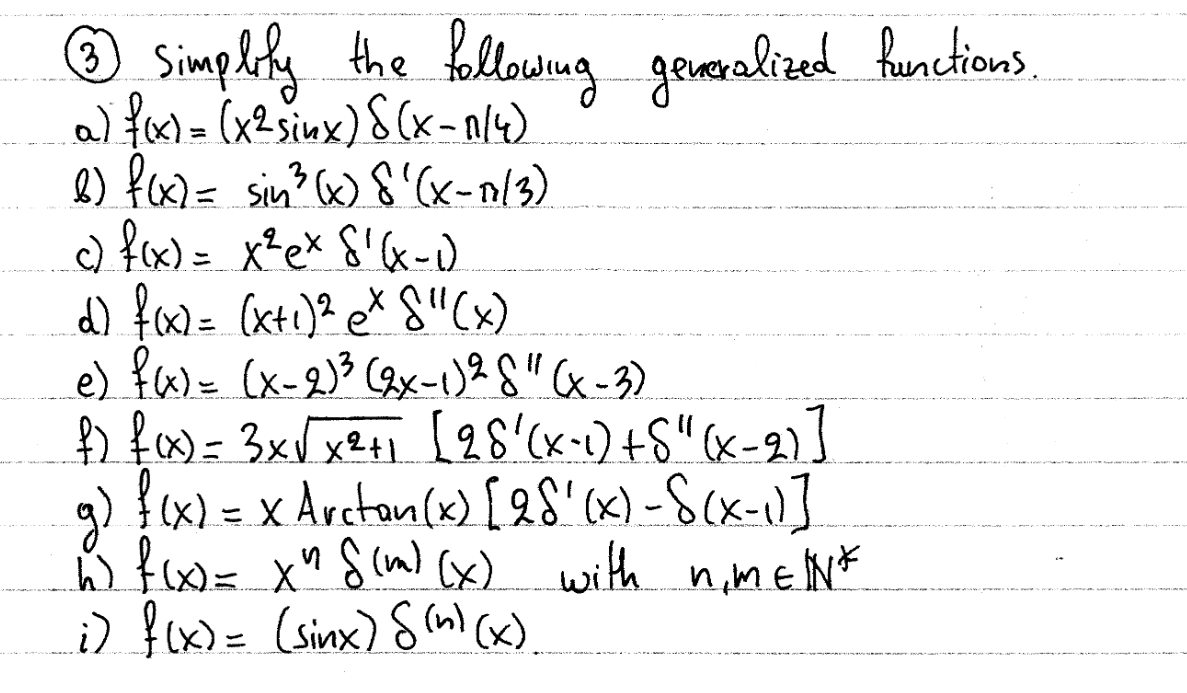 ③ Simplify the following generalized functions.
a) f(x) = (x² sinx) δ(x-π/4)
b) f(x) = sin³(x) δ'(x-π/3)
c) f(x) = x²eˣ δ'(x-1)
d) f(x) = (x+1)² eˣ δ''(x)
e) f(x) = (x-2)³ (2x-1)² δ''(x-3)
f) f(x) = 3x√(x²+1) [2δ'(x-1)+δ''(x-2)]
g) f(x) = x Arctan(x) [2δ'(x)-δ(x-1)]
h) f(x) = xⁿ δ⁽ᵐ⁾(x) with n,m∈ℕ*
i) f(x) = (sinx) δ⁽ⁿ⁾(x).